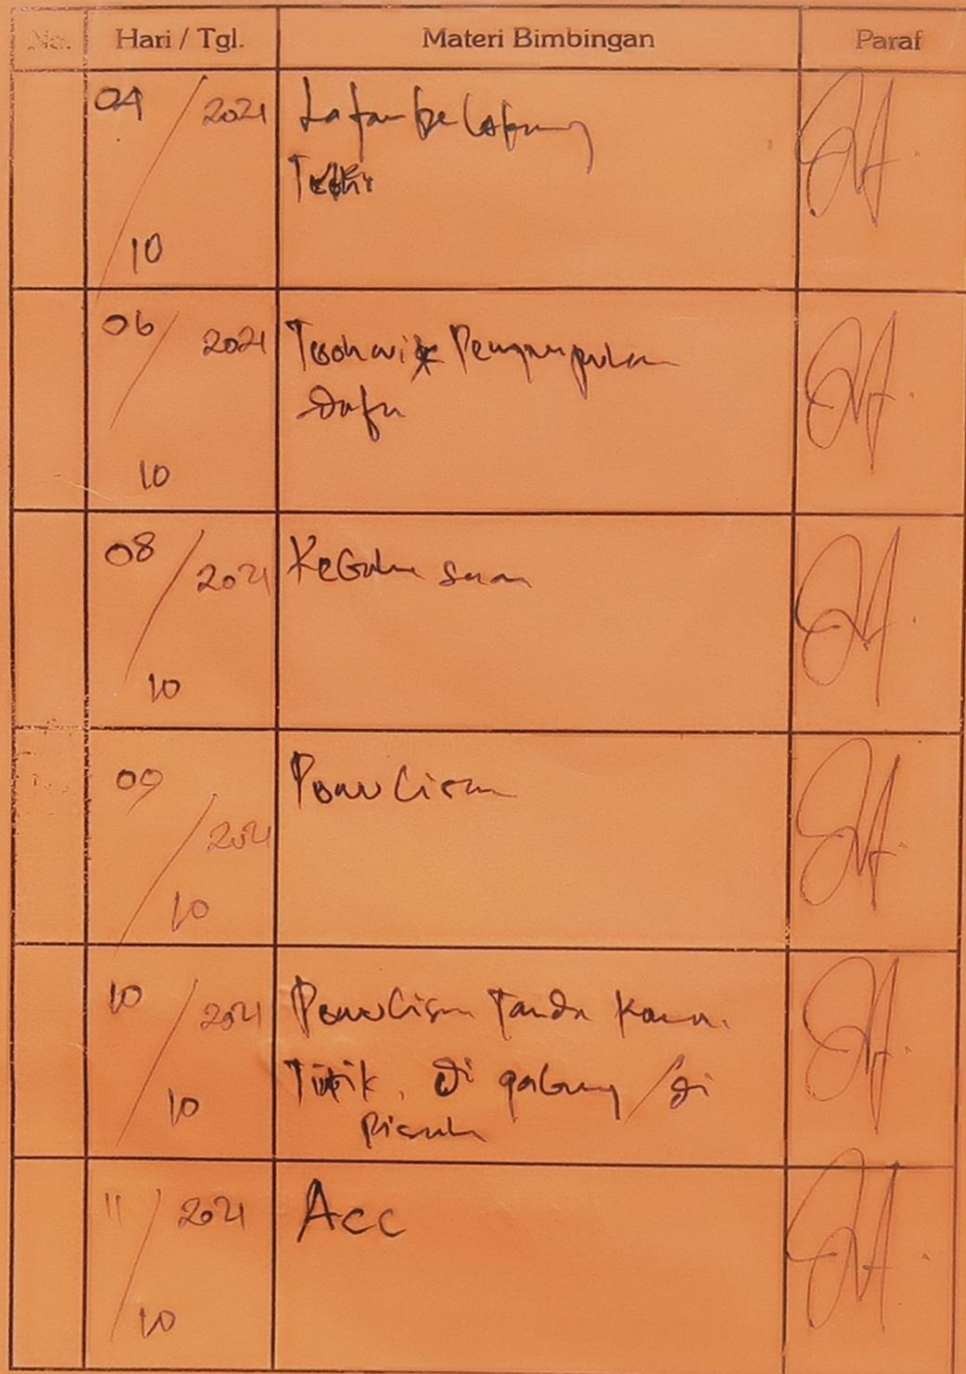 No. Hari / Tgl. Materi Bimbingan Paraf
04/10 2021 Latar belakang
Teori
06/10 2021 Tekhnik Pengumpulan
Data
08/10 2021
09/10 2021 Penulisan
10/10 2021 Penulisan Tanda Koma.
Titik, di gabung / di
Pisah
11/10 2021 Acc